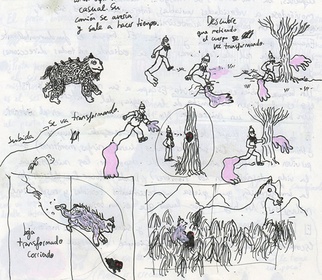 casual su
camión se avería
y sale a hacer tiempo.
Descubre
que metiendo
el cuerpo
va transformando.
Subida → se va transformando
baja
transformado
corriendo